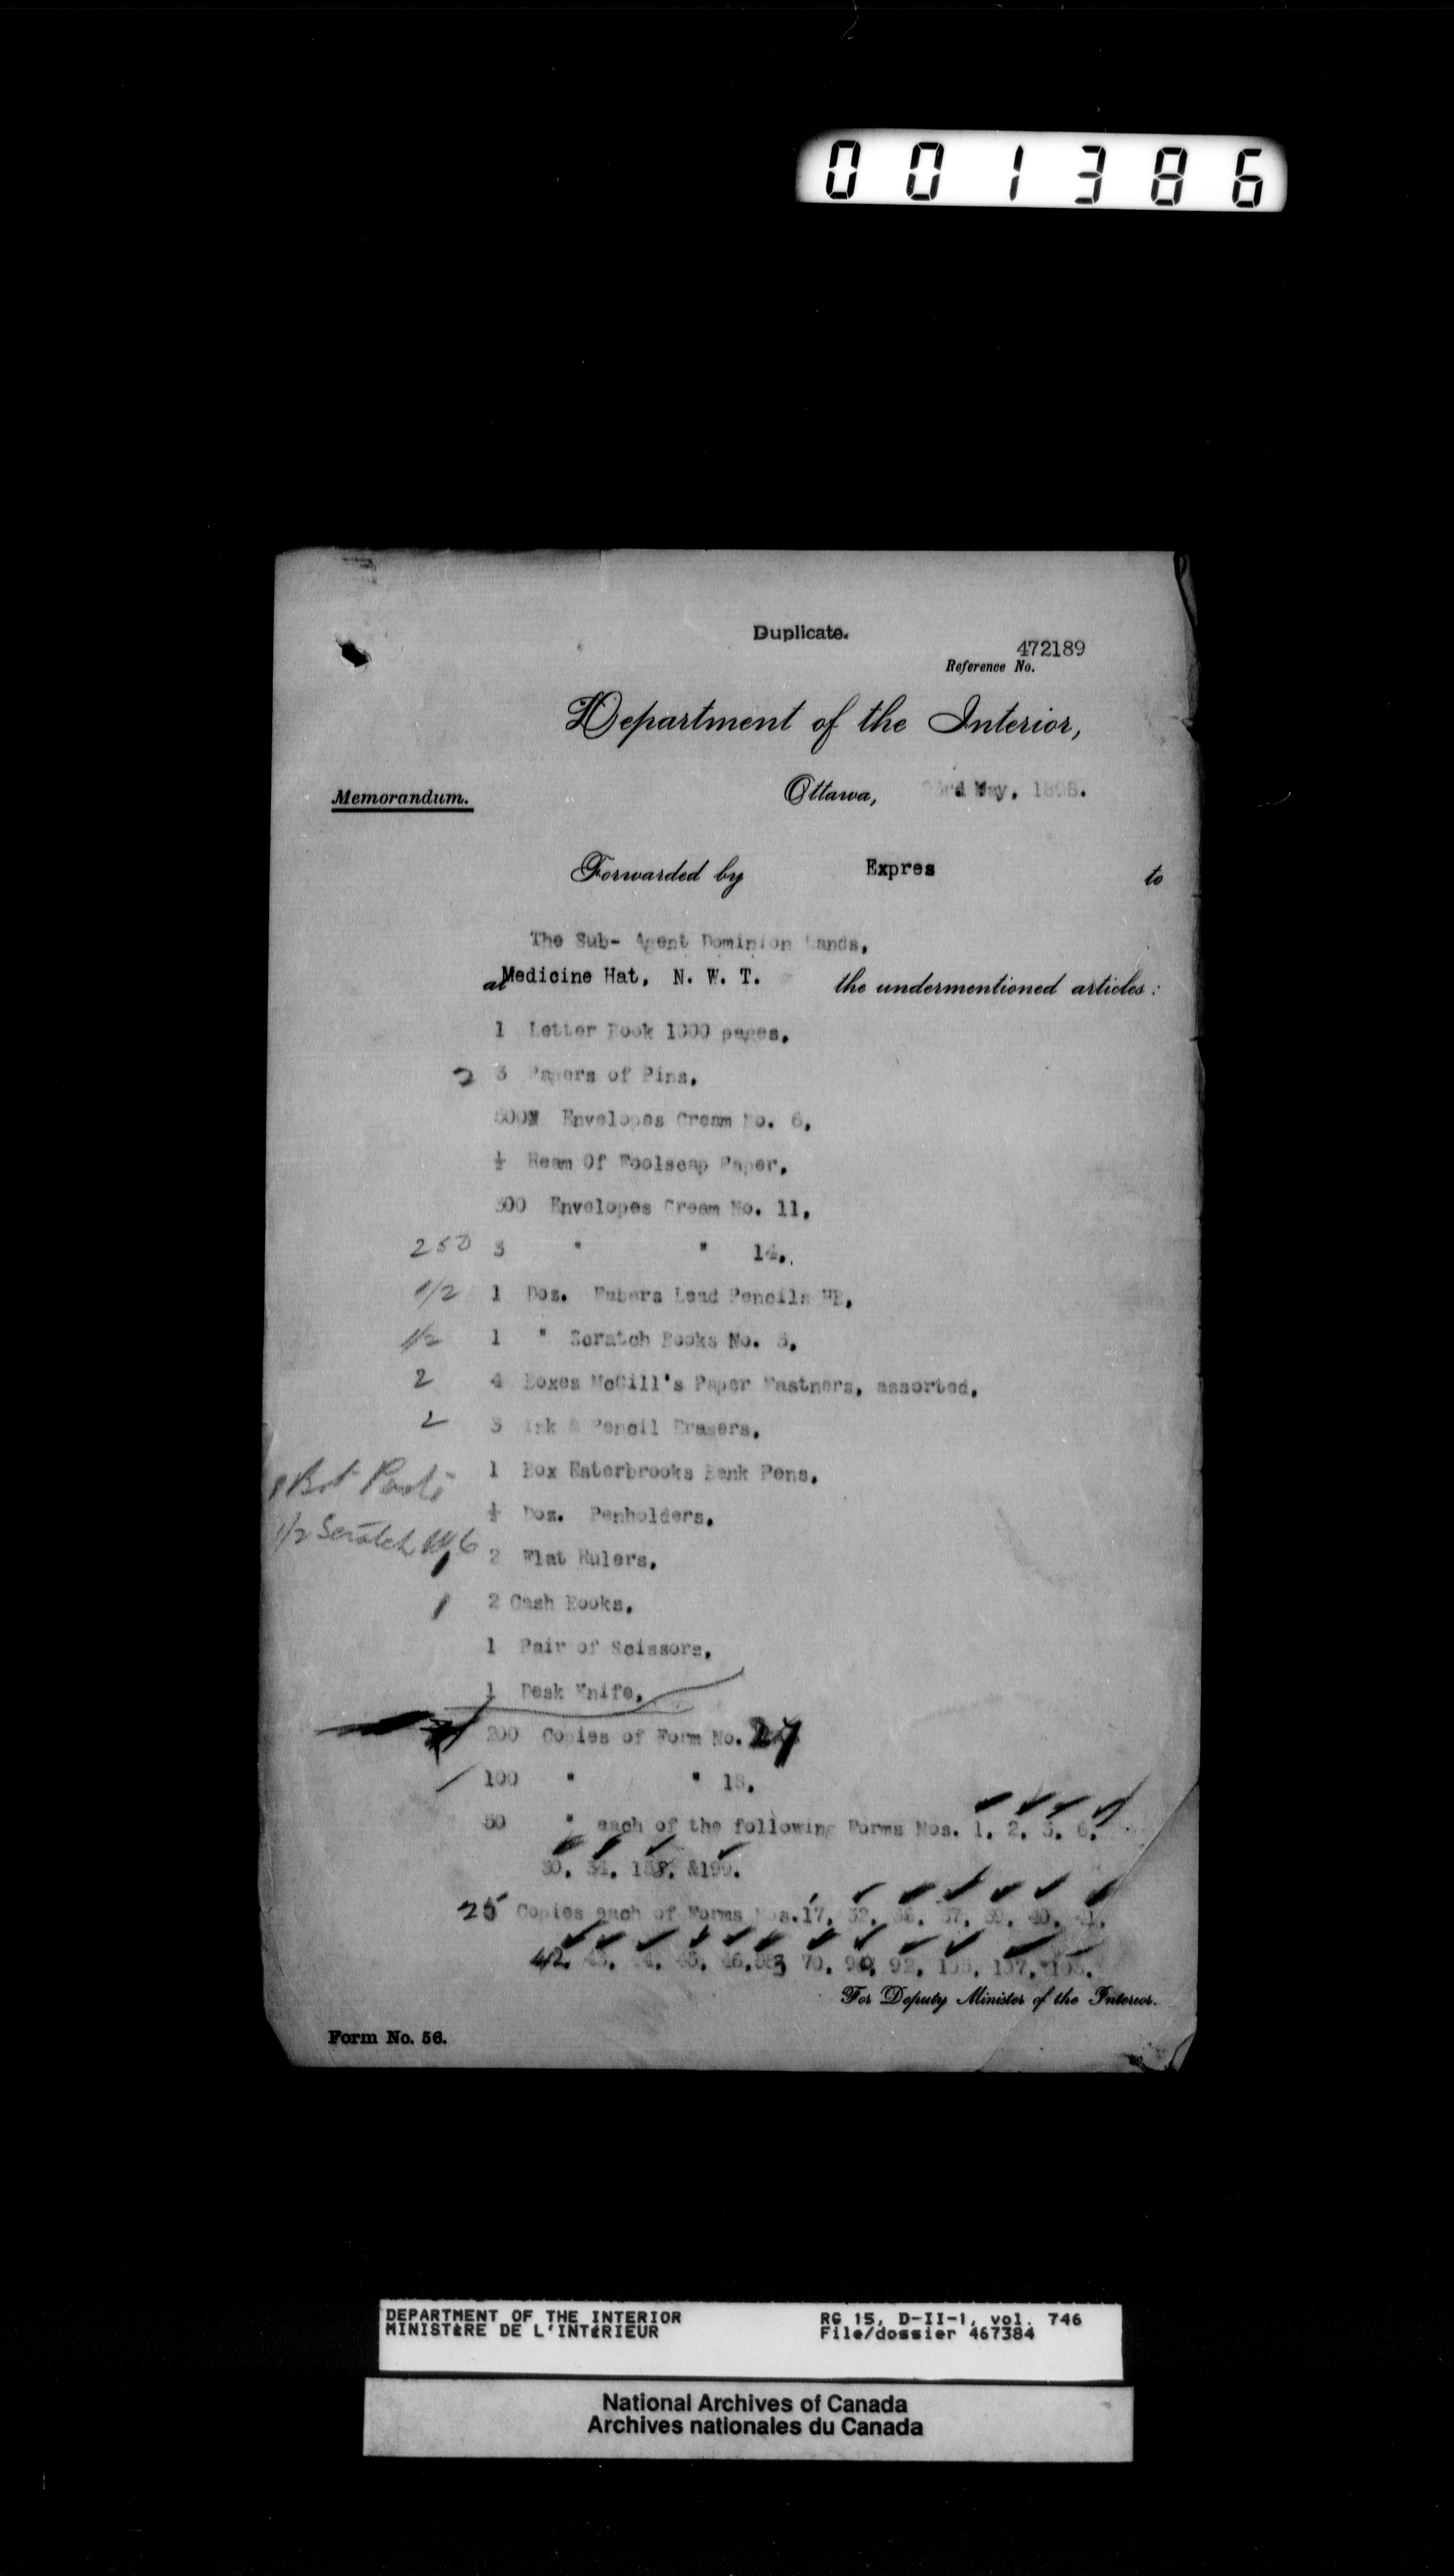 001386
Duplicate.
472189
Reference No.
Department of the Interior,
Memorandum.
Ottawa, 23rd May, 1898.
Forwarded by Expres to
The Sub- Agent Dominion Lands,
at Medicine Hat, N. W. T. the undermentioned articles:
1 Letter Book 1000 pages.
2 3 Papers of Pins.
500 Envelopes Cream No. 6.
½ Ream Of Foolscap Paper.
500 Envelopes Cream No. 11.
250 3 " " 14.
1/2 1 Doz. Fabers Lead Pencils HB.
1/2 1 " Scratch Books No. 3.
2 4 Boxes McGill's Paper Fastners, assorted.
2 3 Ink & Pencil Erasers.
1 Bot Paste 1 Box Esterbrooks Bank Pens.
½ Doz. Penholders.
1/2 Scratch No 6
1 2 Flat Rulers.
1 2 Cash Books.
1 Pair of Scissors.
1 Desk Knife.
200 Copies of Form No. 27
100 " " 18.
50 " each of the following Forms Nos. 1. 2. 6.
30. 34. &199.
25 Copies each of Forms Nos. 17. 37. 39. 40. 41.
42. 70. 90. 92. 107.
For Deputy Minister of the Interior.
Form No. 56.
DEPARTMENT OF THE INTERIOR
MINISTÈRE DE L'INTÉRIEUR
RG 15, D-II-1, vol. 746
File/dossier 467384
National Archives of Canada
Archives nationales du Canada